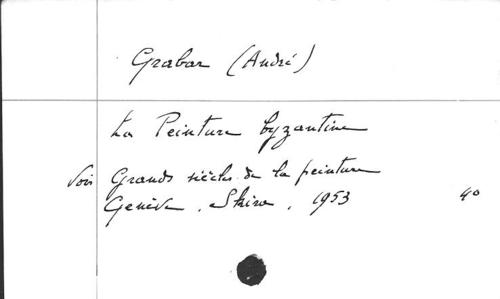 Grabar (André)
La Peinture byzantine
Voir Grands siècles de la peinture
Genève, Skira, 1953 40